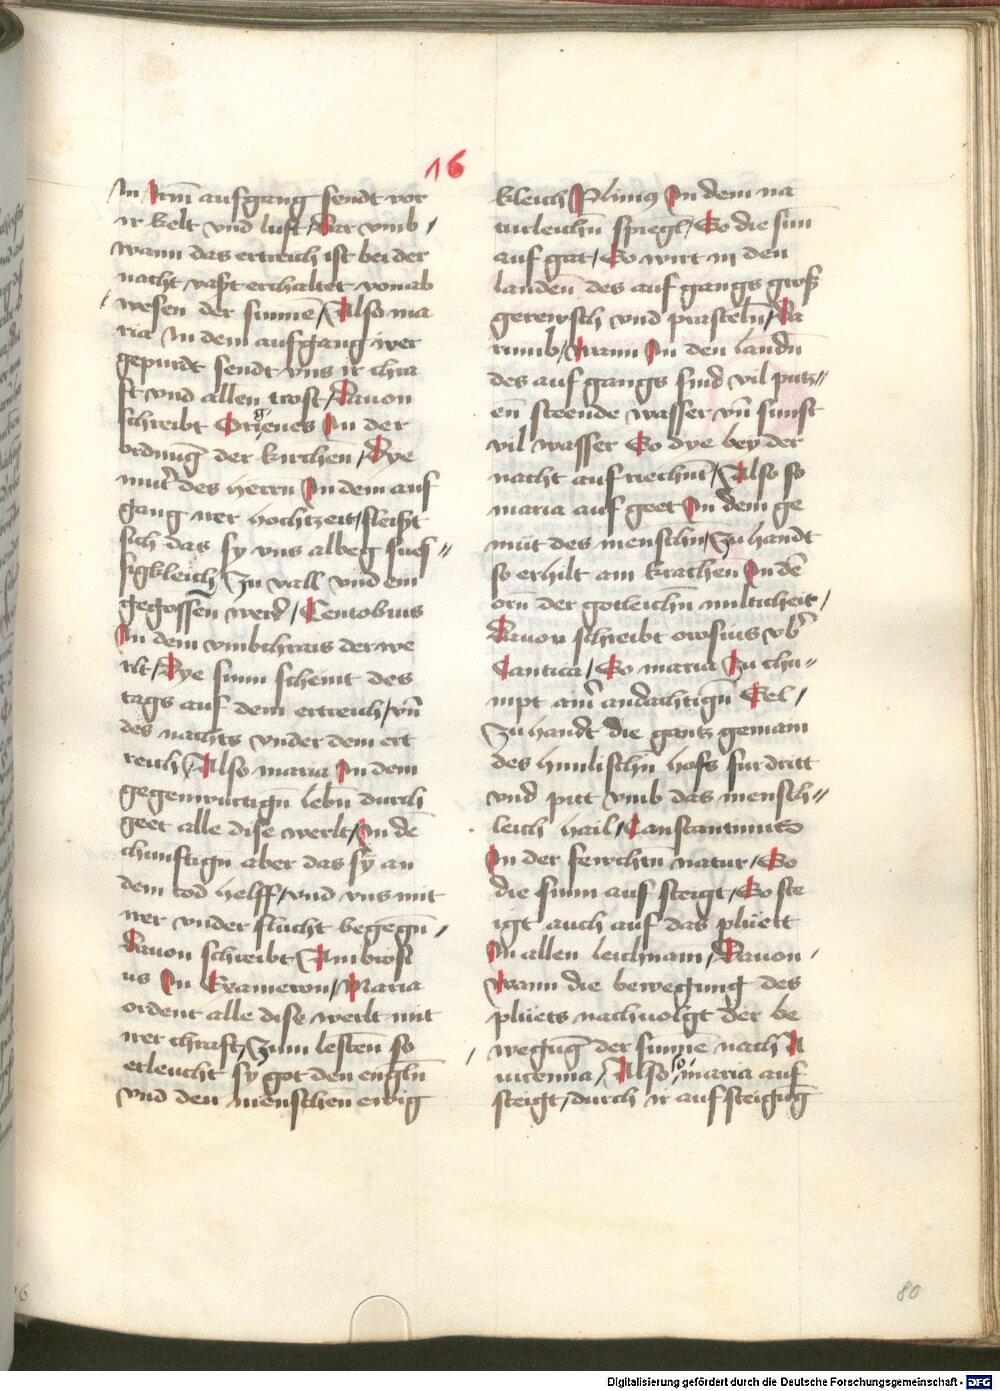 16
In irm̄ aufgang sendt vor
ir kelt vnd luft / Dar vmb /
wann das ertreich ist bei der
nacht vast erchaltet vom ab
wesen der sunnē / Also ma
ria In dem aufgang irer
gepurdt sendt vns ir chra
ft vnd allen trost / Dauon
schreibt Origenes In der
ordnung der kirchen / Dye
mut̄ des herrn In dem auf
gang irer hochtzeit / fleist
sich das sy vns albeg sues //
sigkleich Zu vall vnd ein
gegossen werd̄ / Cenobius
In dem vmbchrais der we
rlt / Dye sunn scheint des
tags auf dem ertreich / vn̄
des nachts vnder dem ert
reich / Also maria In dem
gegenwurtign̄ lebn̄ durch
geet alle dise werlt / In dē
chunftign̄ aber das sy an
dem tod helff / vnd vns mit
irer vnder flucht begegn̄ //
Dauon schreibt Ambrosi
us In Exameron / Maria
ordent alle dise werlt mit
irer chraft / Zum lesten so
erleucht sy got den engln̄
vnd den menschen ewig
kleich Plinius In dem na
turleichn̄ spiegl / So die sun̄
auf gat / So wirt in den
landen des auf gangs gros
gerewsch vnd prasteln̄ / Da
rumb / Wann In den landn̄
des auf gangs sind vil putz //
en steende wasser vn̄ sunst
vil wasser So dye bey der
nacht auf riechnt / Also so
maria auf geet In dem ge
müt des menschn̄ / Zu handt
so erhilt am krachen In dē
orn̄ der gotleichn̄ milticheit /
Dauon schreibt orosius vb̄
Cantica / So maria Zu chu //
mpt am̄ andachtign̄ Sel /
Zu handt die gantz gemain
des himlischn̄ hofs fur dritt
vnd pitt vmb das mensch //
leich hail / Constantinus
In der fewchtn̄ natur / So
die sunn auf steigt / So ste
igt auch auf das pluett
In allen leichnam / Dauon /
Wann die bewegung des
pluets nachuolgt der be
weguḡ der sunnē nach A
uicenna / Also so maria auf
steigt / durch ir auf steiguḡ
80
Digitalisierung gefördert durch die Deutsche Forschungsgemeinschaft - DFG